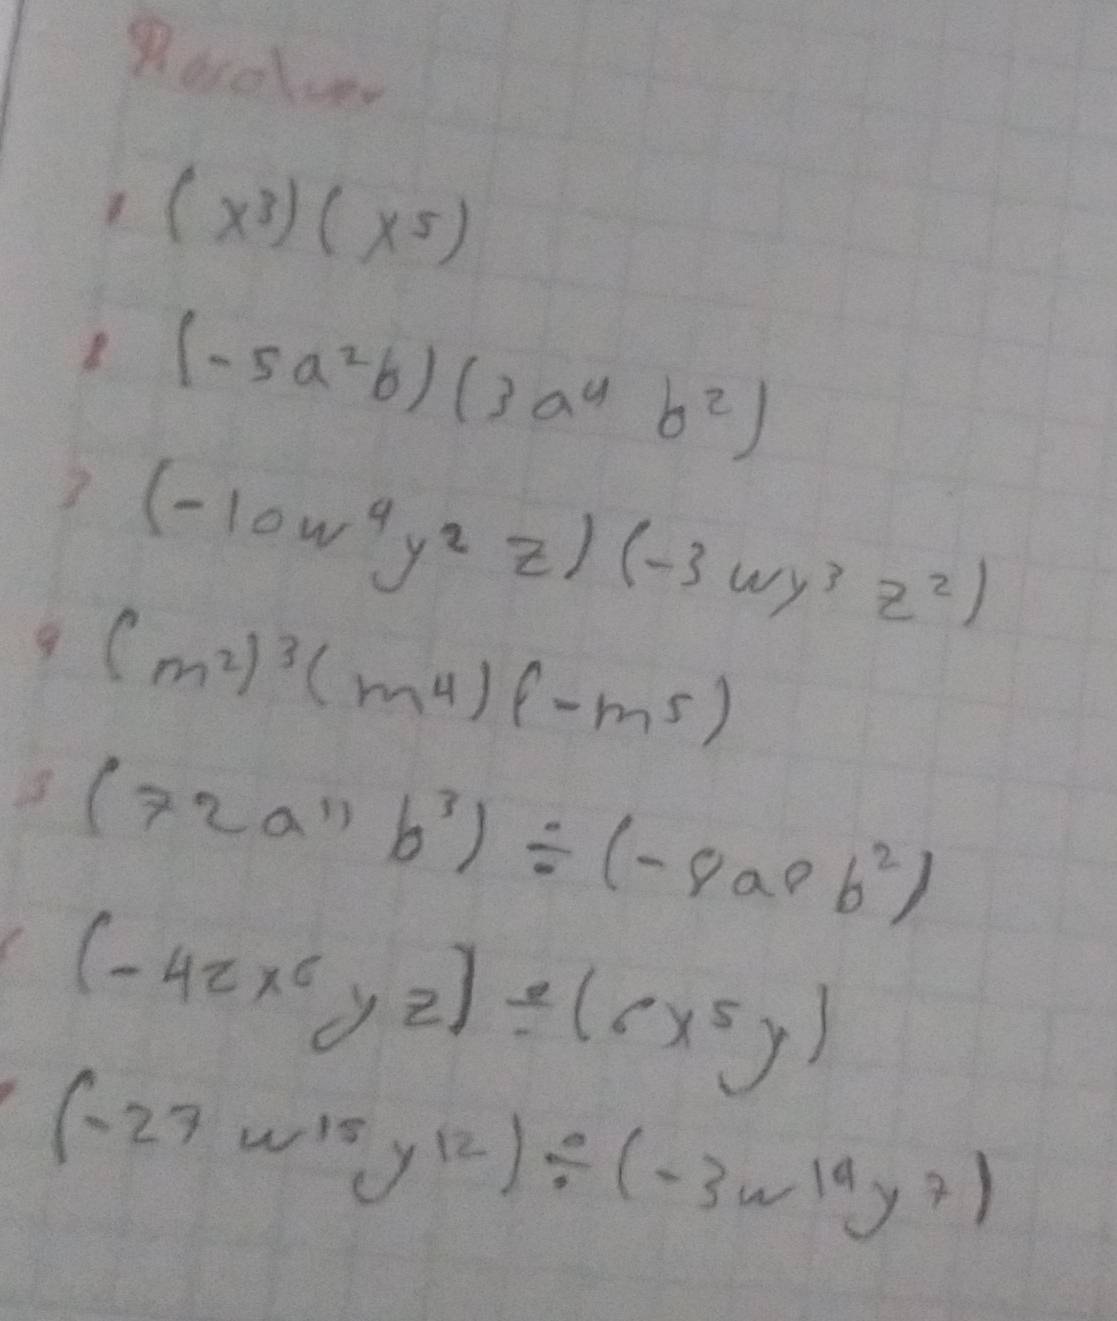 Resolver
1 (x³)(x⁵)
(-5a²b)(3a⁴ b²)
3 (-10w⁴y² z)(-3wy³ z²)
4 (m²)³(m⁴)(-m⁵)
5 (72a¹¹ b³) ÷ (-8a⁸ b²)
(-42x⁶yz) ÷ (6x⁵y)
(-27 w¹⁵y¹²) ÷ (-3w¹⁴y⁷)